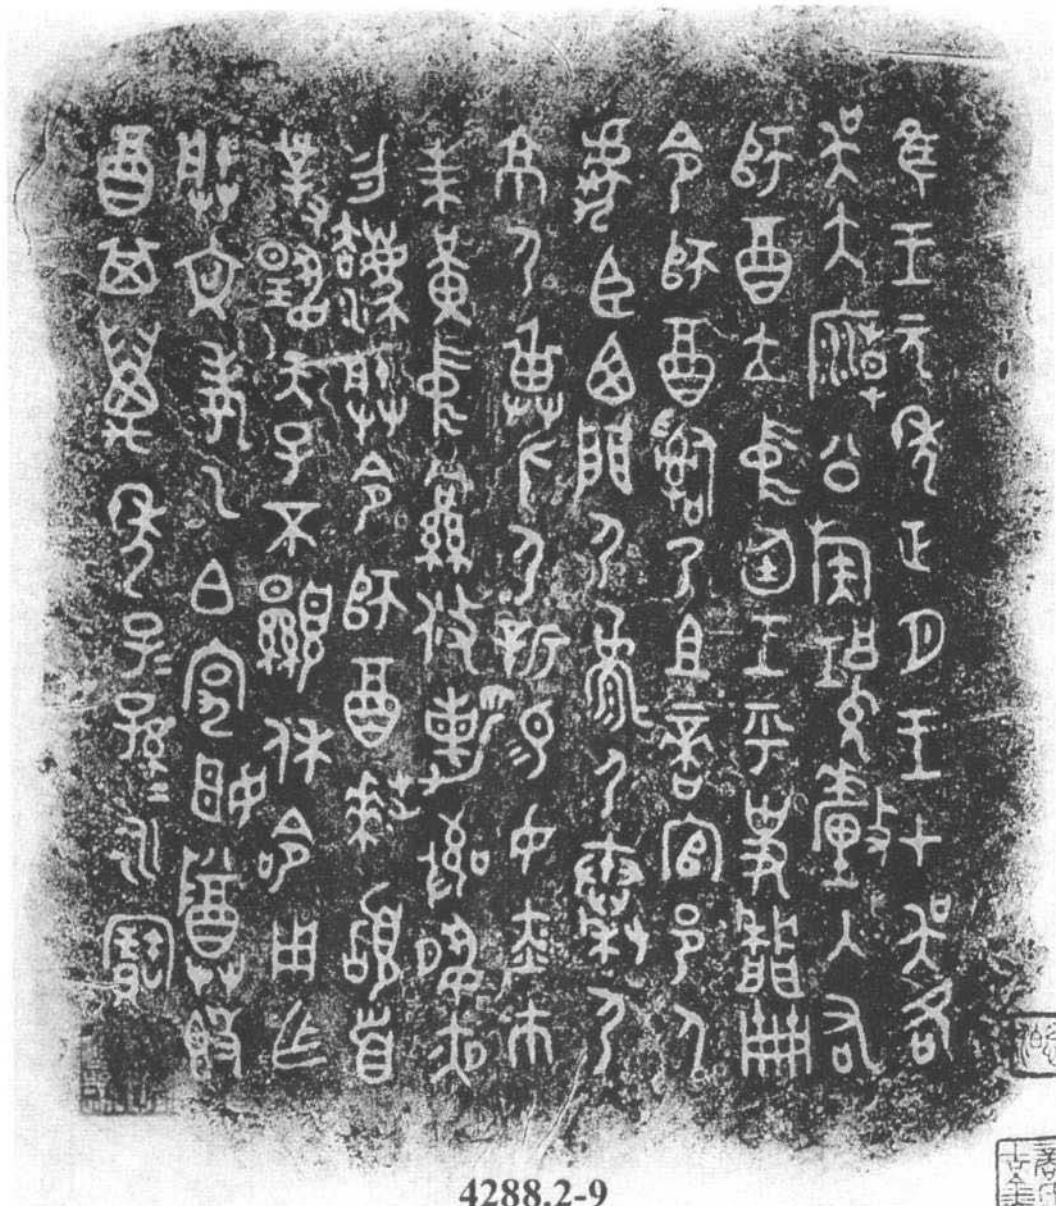 隹王元年正月王才吳各
吳大廟公族釐入右
師酉立中廷王乎史冊
令師酉嗣乃且啻官邑人
虎臣西門尸尸秦尸
京尸身尸新易女赤巿
朱黃中絅攸勒敬夙夜
勿灋朕令師酉拜𩒨首
對揚天子不顯休命用乍
朕文考乙白宄姬尊簋
酉其萬年子=孫=永寶
4288.2-9